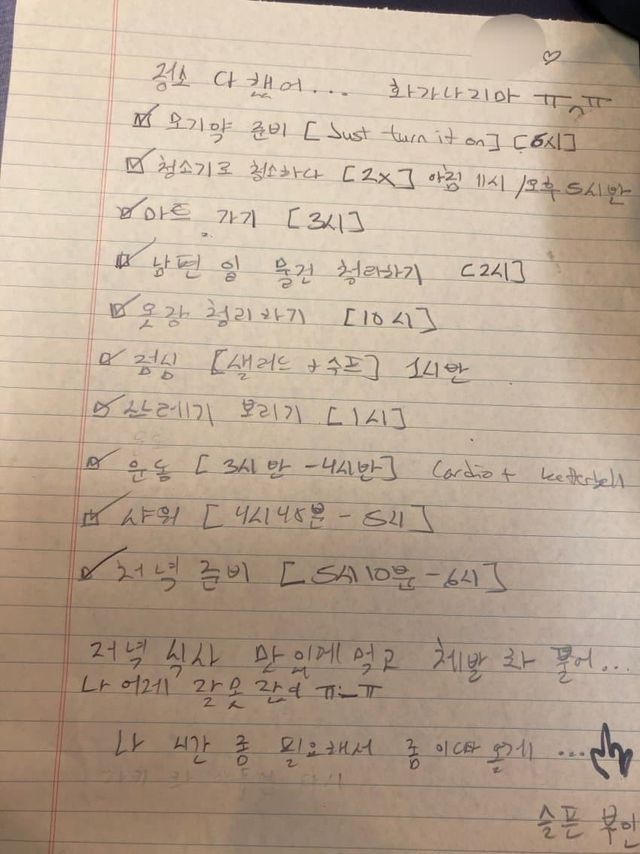 청소 다 했어... 화가나지마 ㅠ^ㅠ
☑ 모기약 준비 [Just turn it on] [6시]
☑ 청소기로 청소하다 [2x] 아침 11시 / 오후 5시반
☑ 마트 가기 [3시]
☑ 남편 일 물건 청리하기 [2시]
☑ 옷장 청리하기 [10시]
☑ 점심 [샐러드 + 수프] 1시반
☑ 버리기 [1시]
☑ 운동 [3시반 - 4시반] Cardio + kettebell
☑ 샤워 [4시45분 - 5시]
☑ 저녁 준비 [5시10분 - 6시]
저녁 식사 먹고 체발 화 풀어...
나 어제 잘못 ㅠ_ㅠ
나 시간 좀 필요해서 좀 이따 올게 ...
슬픈 부인